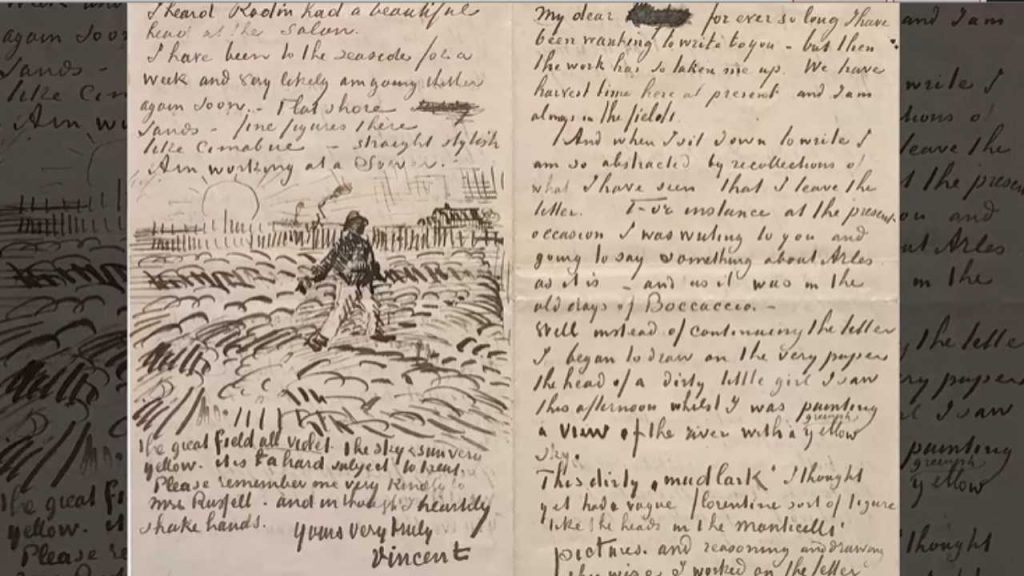 I heard Rodin had a beautiful
head at the salon.
I have been to the seaside for a
week and very likely am going thither
again soon. – Flat shore
sands – fine figures there
like Cimabue – straight stylish
Am working at a Sower.
the great field all violet the sky & sun very
yellow. it is a hard subject to treat.
Please remember me very kindly to
mrs Russell – and in thought I heartily
shake hands.
yours very truly
Vincent
My dear for ever so long I have
been wanting to write to you – but then
the work has so taken me up. We have
harvest time here at present and I am
always in the fields.
And when I sit down to write I
am so abstracted by recollections of
what I have seen that I leave the
letter. For instance at the present
occasion I was writing to you and
going to say something about Arles
as it is – and as it was in the
old days of Boccaccio. –
Well instead of continuing the letter
I began to draw on the very paper
the head of a dirty little girl I saw
this afternoon whilst I was painting
a view of the river with a greenish yellow
sky.
This dirty "mudlark" I thought
yet had a vague florentine sort of figure
like the heads in the monticelli
pictures. and reasoning and drawing
this wise I worked on the letter